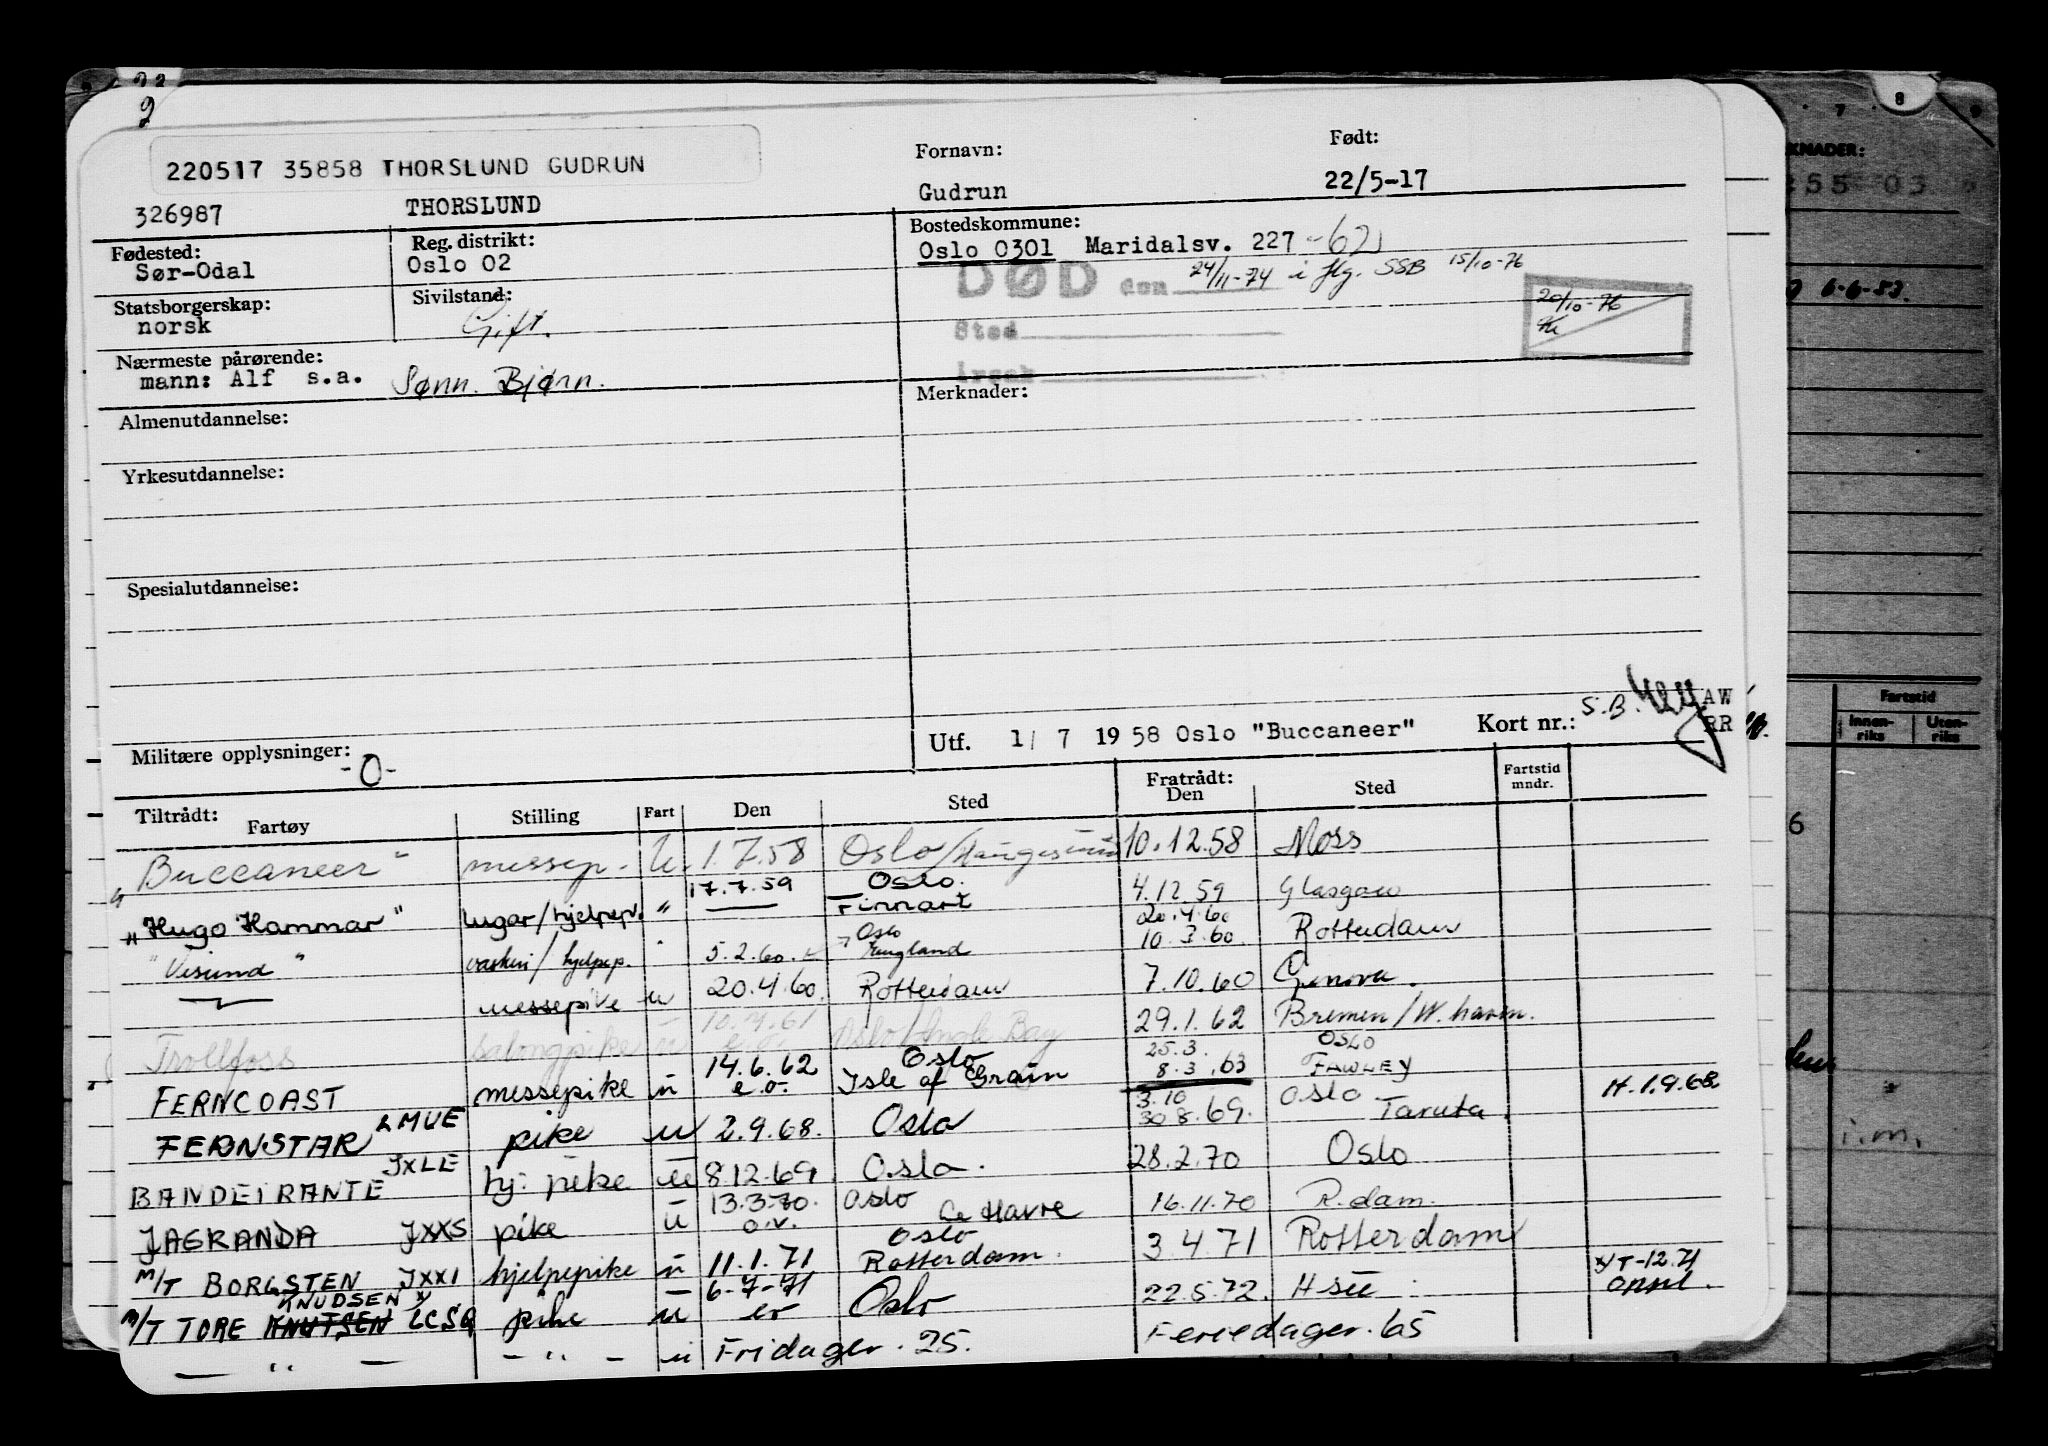 220517 35858 THORSLUND GUDRUN
Fornavn:
Født:
326987 THORSLUND Gudrun 22/5-17
Fødested: Sør-Odal
Reg. distrikt: Oslo 02
Bostedskommune: Oslo 0301 Maridalsv. 227 -62
DØD den 24/11-74 i flg. SSB 15/10-76
Statsborgerskap: norsk
Sivilstand: Gift.
Sted
20/10-76
Nærmeste pårørende: mann: Alf s.a. Sønn. Bjørn.
Årsak
Almenutdannelse:
Merknader:
Yrkesutdannelse:
Spesialutdannelse:
Militære opplysninger: -0-
Utf. 1/ 7 1958 Oslo "Buccaneer" Kort nr.: S.B.
AW
RR
Tiltrådt: Fartøy Stilling Fart Den Sted Fratrådt: Den Sted Fartstid mndr.
"Buccaneer" messep. U. 1.7.58 Oslo/Haugesund 10.12.58 Moss
"Hugo Hammar" lugar/hjelpep. " 17.7.59 Oslo. Finnart 4.12.59 Glasgow
"Visund" vaskeri/hjelpep. " 5.2.60. Oslo England 20.4.60 10.3.60. Rotterdam
messepike u 20.4.60. Rotterdam 7.10.60 Genova.
Trollfoss salongpike u 10.4.61 e.o. Oslo/ Bay 29.1.62 Bremen/W.havn.
FERNCOAST messepike u 14.6.62 e.o. Oslo Isle of Grain 25.3. 8.3.63 OSLO FAWLEY
FERNSTAR LMUE pike u 2.9.68. Oslo 3.10 30.8.69. Oslo Taruta. H.1.9.68
BANDEIRANTE JXLE hj. pike u 8.12.69. Oslo. 28.2.70 Oslo
JAGRANDA JXXS pike u 13.3.70. o.v. Oslo Le Havre 16.11.70 R.dam.
M/T BORGSTEN JXXI hjelpepike u 11.1.71 Oslo Rotterdam. 3.4.71 Rotterdam
M/T TORE KNUTSEN KNUDSEN x) LCSQ pike u 6-7-71 Oslo 22.5.72. x) T-12.71
— " — - " - u Fridager. 25. Feriedager. 65
KNADER:
6-6-53.
Fartstid
Innen-riks
Uten-riks
6
i.m.